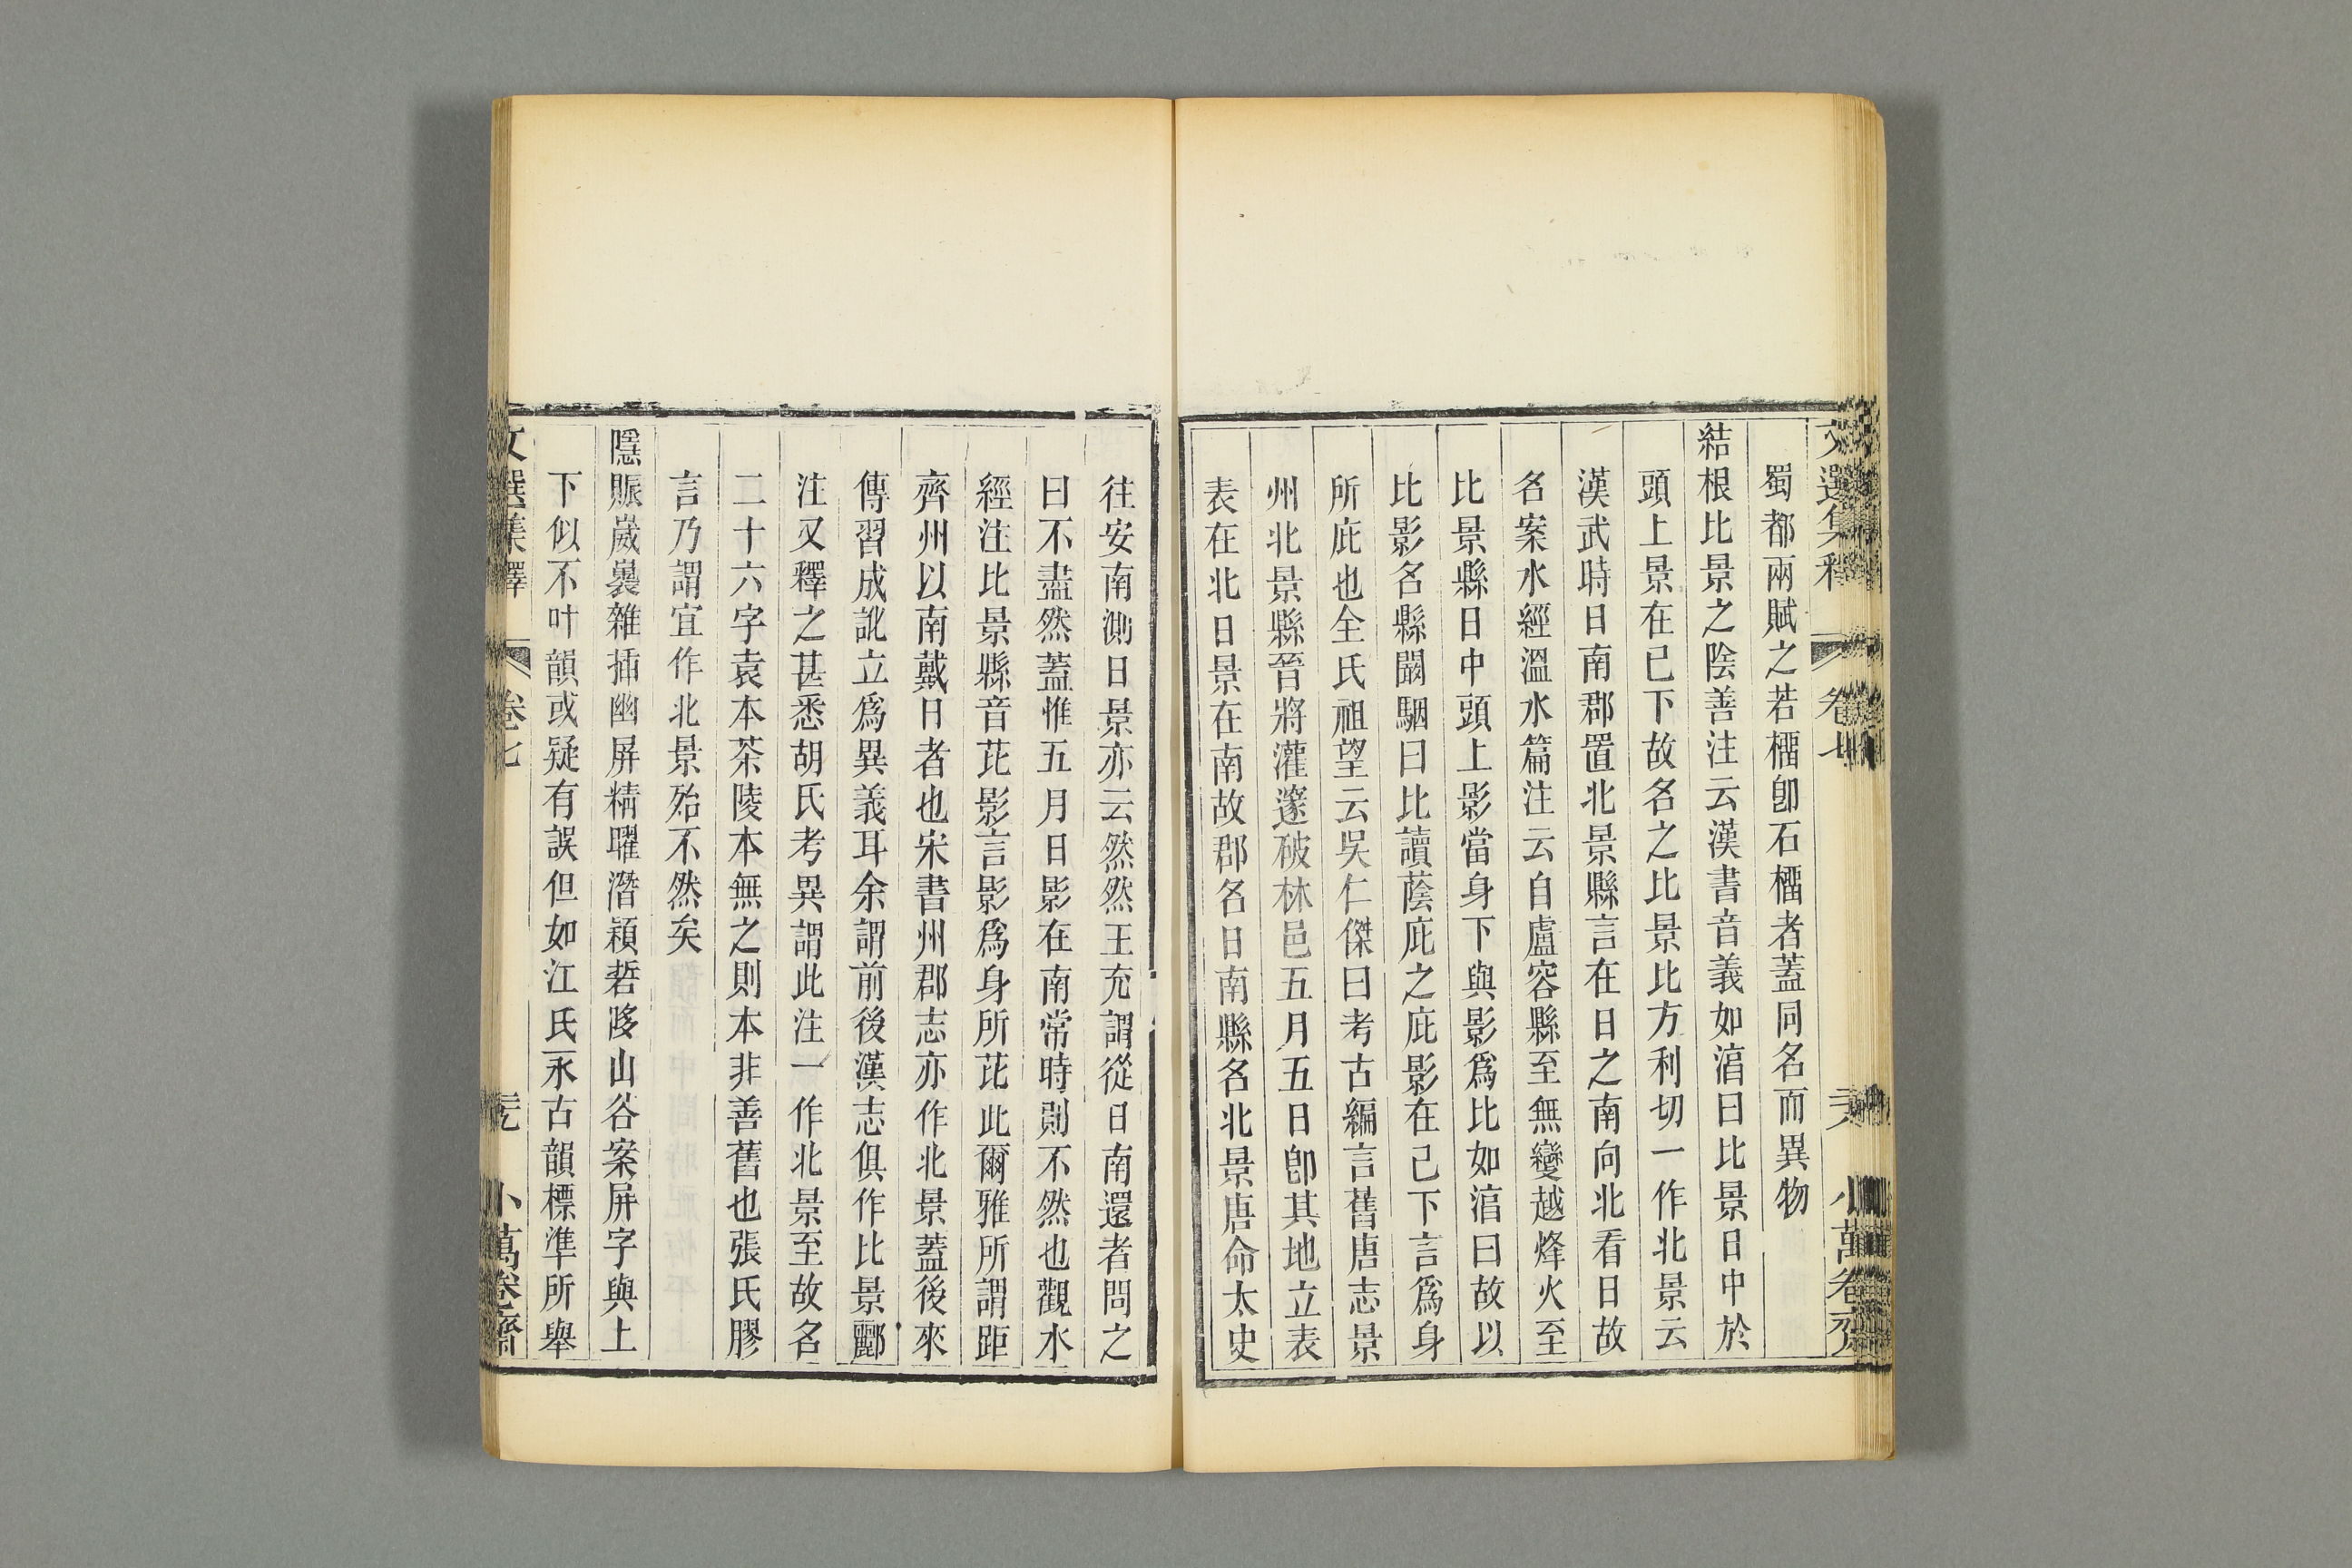 文選集釋 卷七 芺 小萬卷齋
蜀都兩賦之若橊卽石橊者蓋同名而異物
結根比景之陰善注云漢書音義如淳曰比景日中於
頭上景在已下故名之比景比方利切一作北景云
漢武時日南郡置北景縣言在日之南向北看日故
名案水經溫水篇注云自盧容縣至無變越烽火至
比景縣日中頭上影當身下與影爲比如淳曰故以
比影名縣闞駰曰比讀蔭庇之庇影在己下言爲身
所庇也全氏祖望云吳仁傑曰考古編言舊唐志景
州北景縣晉將灌邃破林邑五月五日卽其地立表
表在北日景在南故郡名日南縣名北景唐命太史
往安南測日景亦云然然王充謂從日南還者問之
曰不盡然蓋惟五月日影在南常時則不然也觀水
經注比景縣音芘影言影爲身所芘此爾雅所謂距
齊州以南戴日者也宋書州郡志亦作北景蓋後來
傳習成訛立爲異義耳余謂前後漢志俱作比景酈
注又釋之甚悉胡氏考異謂此注一作北景至故名
二十六字袁本茶陵本無之則本非善舊也張氏膠
言乃謂宜作北景殆不然矣
隱賑崴㠢雜插幽屏精曜潛穎硩陊山谷案屏字與上
下似不叶韻或疑有誤但如江氏永古韻標準所舉
文選集釋 卷七 小萬卷齋